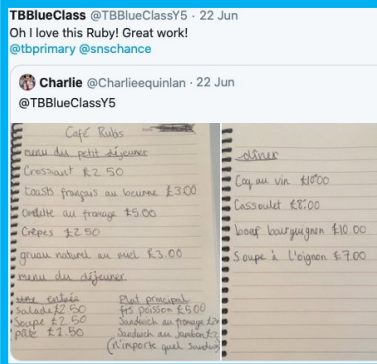 TBBlueClass @TBBlueClassY5 · 22 Jun
Oh I love this Ruby! Great work!
@tbprimary @snschance
Charlie @Charlieequinlan · 22 Jun
@TBBlueClassY5
Café Rubis
menu du petit déjeuner
Croissant £2.50
toasts français au beurre £3.00
au fromage £5.00
Crêpes £2.50
gruau naturel au miel £3.00
menu du déjeuner
une entrée
salade £2.50
Soupe £2.50
pâté £1.50
Plat principal
poisson £5.00
Sandwich au fromage
Sandwich au Jambon
(n'importe quel
dîner
Coq au vin £10.00
Cassoulet £8.00
bœuf bourguignon £10.00
Soupe à L'oignon £7.00